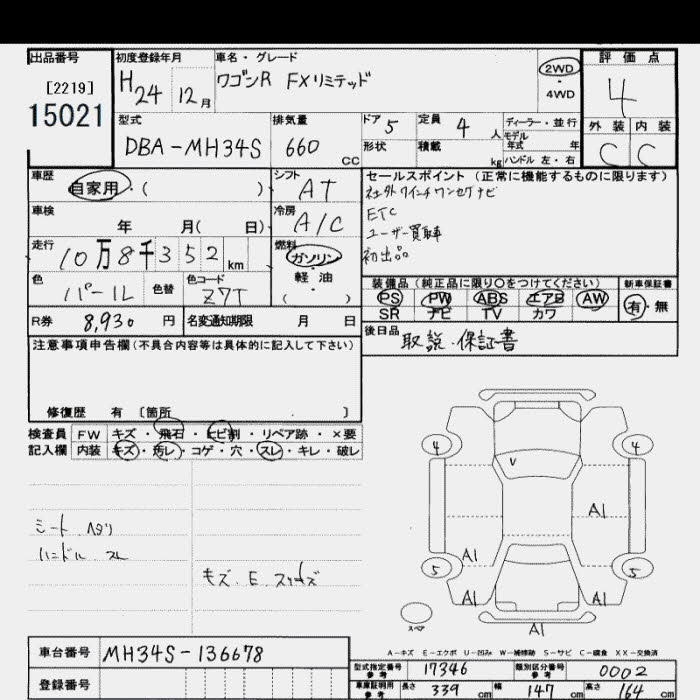 出品番号 初度登録年月 車名・グレード 評価点
[2219] H24 12月 ワゴンR FXリミテッド 2WD 4
15021 ・4WD
型式 排気量 ドア 5 定員 4 人 ディーラー・並行 外装 内装
DBA-MH34S 660 CC 形状 積載 kg モデル年式 年 C C
ハンドル 左・右
車歴 自家用・( ) シフト AT セールスポイント (正常に機能するものに限ります)
社外7インチワンセグナビ
車検 年 月( 日) 冷房 A/C ETC
ユーザー買取車
走行 10万8千352km 燃料 ガソリン・軽油( ) 初出品
色 パール 色替 色コード Z7T 装備品 (純正品に限り○をつけてください) 新車保証書
PS PW ABS エアB AW 有・無
R券 8,930円 名変通知期限 月 日 SR ナビ TV カワ
注意事項申告欄 (不具合内容等は具体的に記入して下さい) 後日品 取説・保証書
修復歴 有 〔箇所 〕
検査員 FW キズ・飛石・ヒビ割・リペア跡・×要
記入欄 内装 キズ・汚レ・コゲ・穴・スレ・キレ・破レ
4 4
V
A1
シート ヘタリ
ハンドル スレ
A1
5 5
キズ・E・
A1 A1
スペア A1
A-キズ E-エクボ U-凹み W-補修跡 S-サビ C-腐食 XX-交換済
車台番号 MH34S-136678
型式指定番号 参考 17346 類別区分番号 参考 0002
登録番号 車庫証明用 参考 長さ 339 cm 幅 147 cm 高さ 164 cm